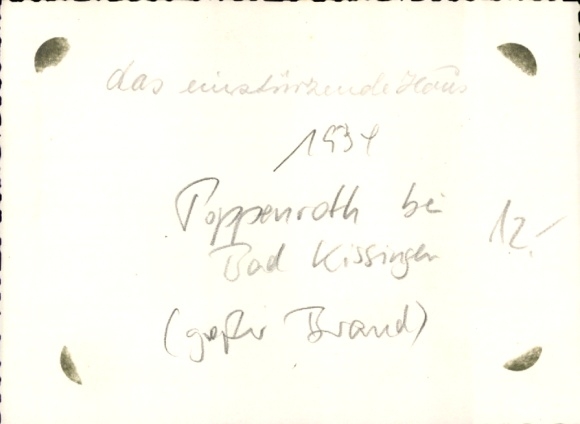 das einstürzende Haus
1934
Poppenroth bei
Bad Kissingen
12.-
(großer Brand)